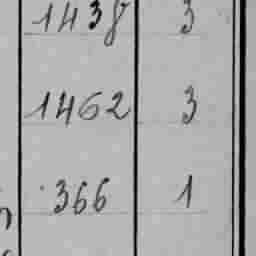 1438 3
1462 3
366 1